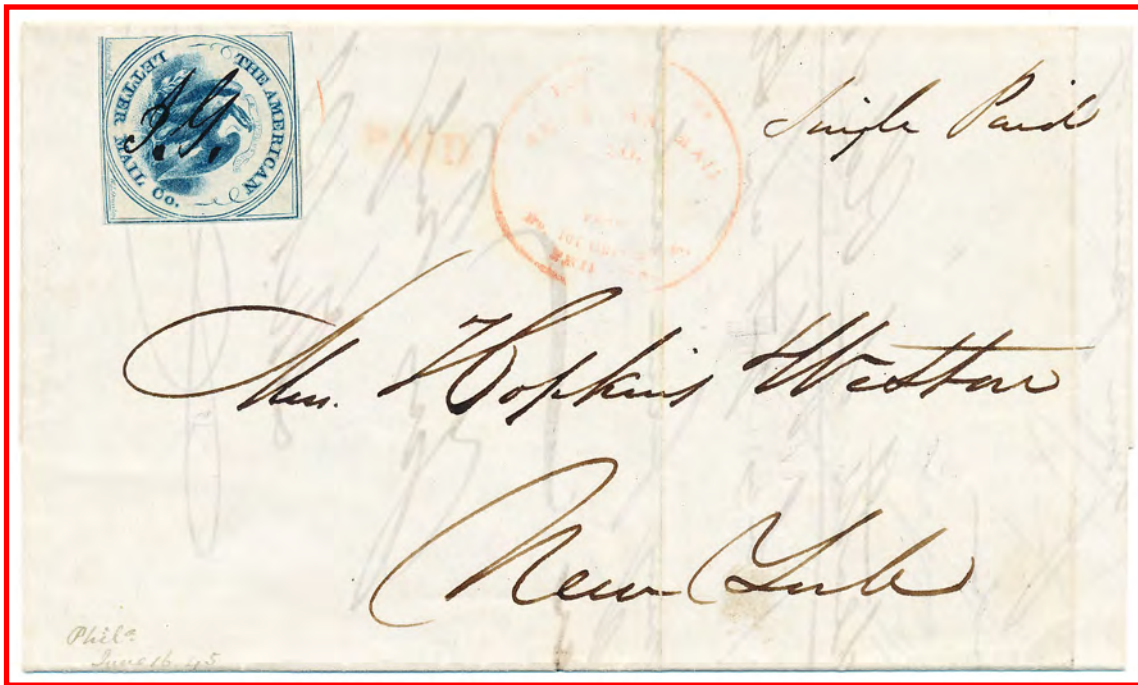 THE AMERICAN
LETTER MAIL Co.
J.G.
PAID
MAIL
No. 101
Single Paid
Hopkins Weston
New York
Phila
June 16 45